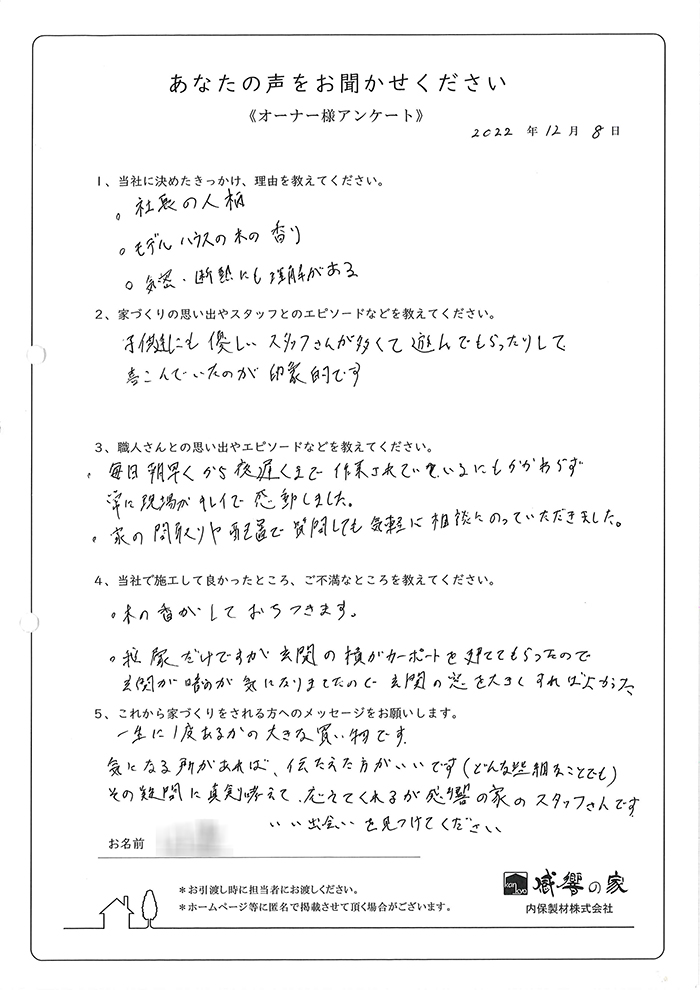 あなたの声をお聞かせください
《オーナー様アンケート》
2022 年 12 月 8 日
1、当社に決めたきっかけ、理由を教えてください。
。社長の人柄
。モデルハウスの木の香り
。気密・断熱にも理解がある
2、家づくりの思い出やスタッフとのエピソードなどを教えてください。
子供達にも優しいスタッフさんが多くて遊んでもらったりして
喜こんでいたのが印象的です
3、職人さんとの思い出やエピソードなどを教えてください。
。毎日朝早くから夜遅くまで作業されているにもかかわらず
常に現場がキレイで感動しました。
。家の間取りや配置で質問しても気軽に相談にのっていただきました。
4、当社で施工して良かったところ、ご不満なところを教えてください。
。木の香がしておちつきます。
。我家だけですが玄関の横がカーポートを建ててもらったので
玄関が暗めが気になりましたので玄関の窓を大きくすればよかった
5、これから家づくりをされる方へのメッセージをお願いします。
一生に1度あるかの大きな買い物です
気になる所があれば、伝えた方がいいです(どんな些細なことでも)
その疑問に真剣考えて、応えてくれるが感響の家のスタッフさんです
いい出会いを見つけてください
お名前
*お引渡し時に担当者にお渡しください。
*ホームページ等に匿名で掲載させて頂く場合がございます。
kan kyo 感響の家
内保製材株式会社